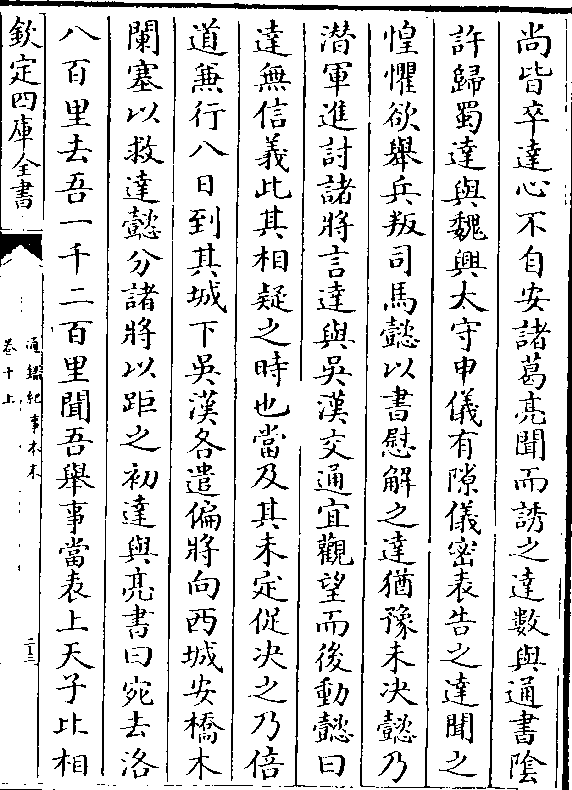 尚皆卒達心不自安諸葛亮聞而誘之達數與通書隂
許歸蜀達與魏興太守申儀有隙儀密表告之達聞之
惶懼欲舉兵叛司馬懿以書慰解之達猶豫未決懿乃
潜軍進討諸將言達與吳漢交通宜觀望而後動懿曰
達無信義此其相疑之時也當及其未定促決之乃倍
道兼行八日到其城下吳漢各遣偏將向西城安橋木
闌塞以救達懿分諸將以距之初達與亮書曰宛去洛
八百里去吾一千二百里聞吾舉事當表上天子比相
欽定四庫全書
通鑑紀事本末
卷十上
二三